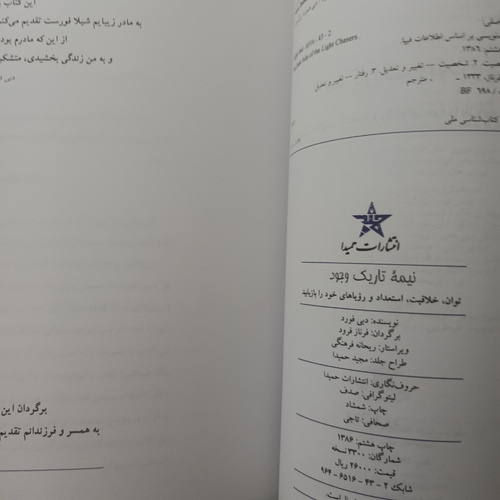 این کتاب
به مادر زیبایم شیلا فورست تقدیم می‌کنم
از این که مادرم بود
و به من زندگی بخشیدی، متشکر
دبی
برگردان این
به همسر و فرزندانم تقدیم
نویسی بر اساس اطلاعات فیپا.
of the Light Chasers.
شخصیت. ۲. شخصیت -- تغییر و تعدیل. ۳. رفتار -- تغییر و تعدیل
۱۳۳۳ - ، مترجم
BF ۶۹۸/
کتاب‌شناسی ملی
انتشارات حمیدا
نیمهٔ تاریک وجود
توان، خلاقیت، استعداد و رؤیاهای خود را بازیابید
نویسنده: دبی فورد
برگردان: فرناز فرود
ویراستار: ریحانه فرهنگی
طراح جلد: مجید حمیدا
حروف‌نگاری: انتشارات حمیدا
لیتوگرافی: صدف
چاپ: شمشاد
صحافی: تاجی
چاپ هشتم: ۱۳۸۶
شمارگان: ۳۳۰۰ نسخه
قیمت: ۲۶۰۰۰ ریال
شابک ۲ - ۴۳ - ۶۵۱۶ - ۹۶۴